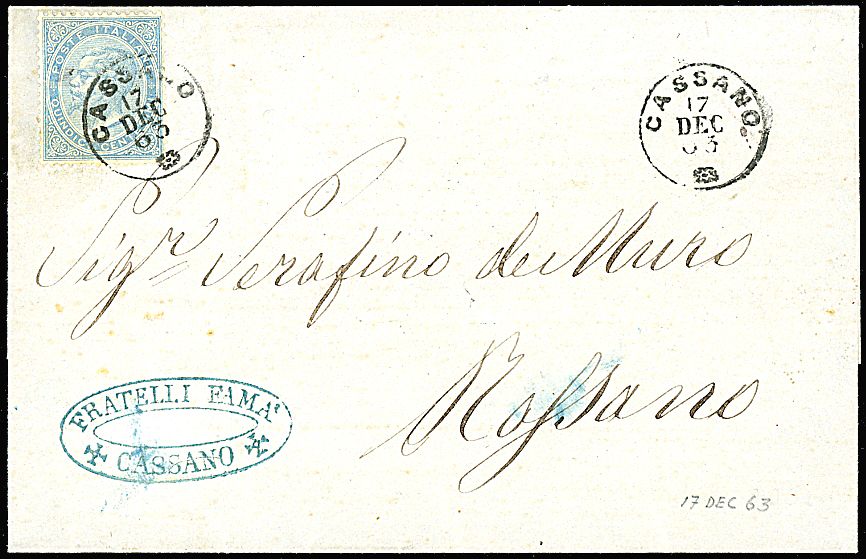 POSTE ITALIANE
QUINDICI CENT
CASSANO
17
DEC
63
CASSANO
17
DEC
63
Sigr Serafino de Muro
Rossano
FRATELLI FAMA'
CASSANO
17 DEC 63